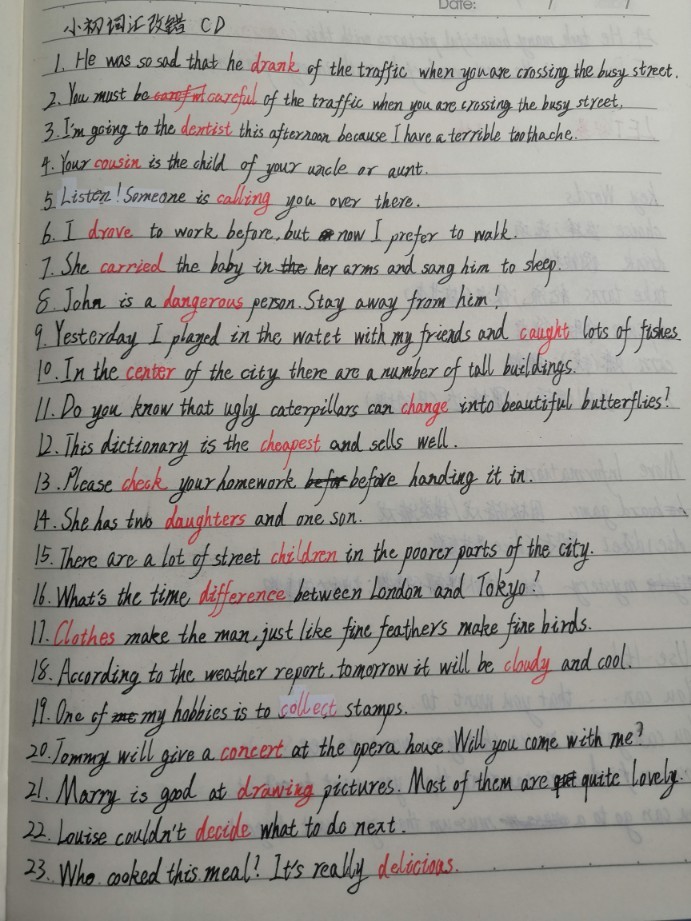 Date:
小初词汇改错 CD
1. He was so sad that he drank of the traffic when you are crossing the busy street.
2. You must be careful careful of the traffic when you are crossing the busy street.
3. I'm going to the dentist this afternoon because I have a terrible toothache.
4. Your cousin is the child of your uncle or aunt.
5. Listen! Someone is calling you over there.
6. I drove to work before, but now I prefer to walk.
7. She carried the baby in the her arms and sang him to sleep.
8. John is a dangerous person. Stay away from him!
9. Yesterday I played in the watet with my friends and caught lots of fishes.
10. In the center of the city there are a number of tall buildings.
11. Do you know that ugly caterpillars can change into beautiful butterflies?
12. This dictionary is the cheapest and sells well.
13. Please check your homework befor before handing it in.
14. She has two daughters and one son.
15. There are a lot of street children in the poorer parts of the city.
16. What's the time difference between London and Tokyo?
17. Clothes make the man, just like fine feathers make fine birds.
18. According to the weather report, tomorrow it will be cloudy and cool.
19. One of me my hobbies is to collect stamps.
20. Tommy will give a concert at the opera house. Will you come with me?
21. Marry is good at drawing pictures. Most of them are quite lovely.
22. Louise couldn't decide what to do next.
23. Who cooked this meal? It's really delicious.